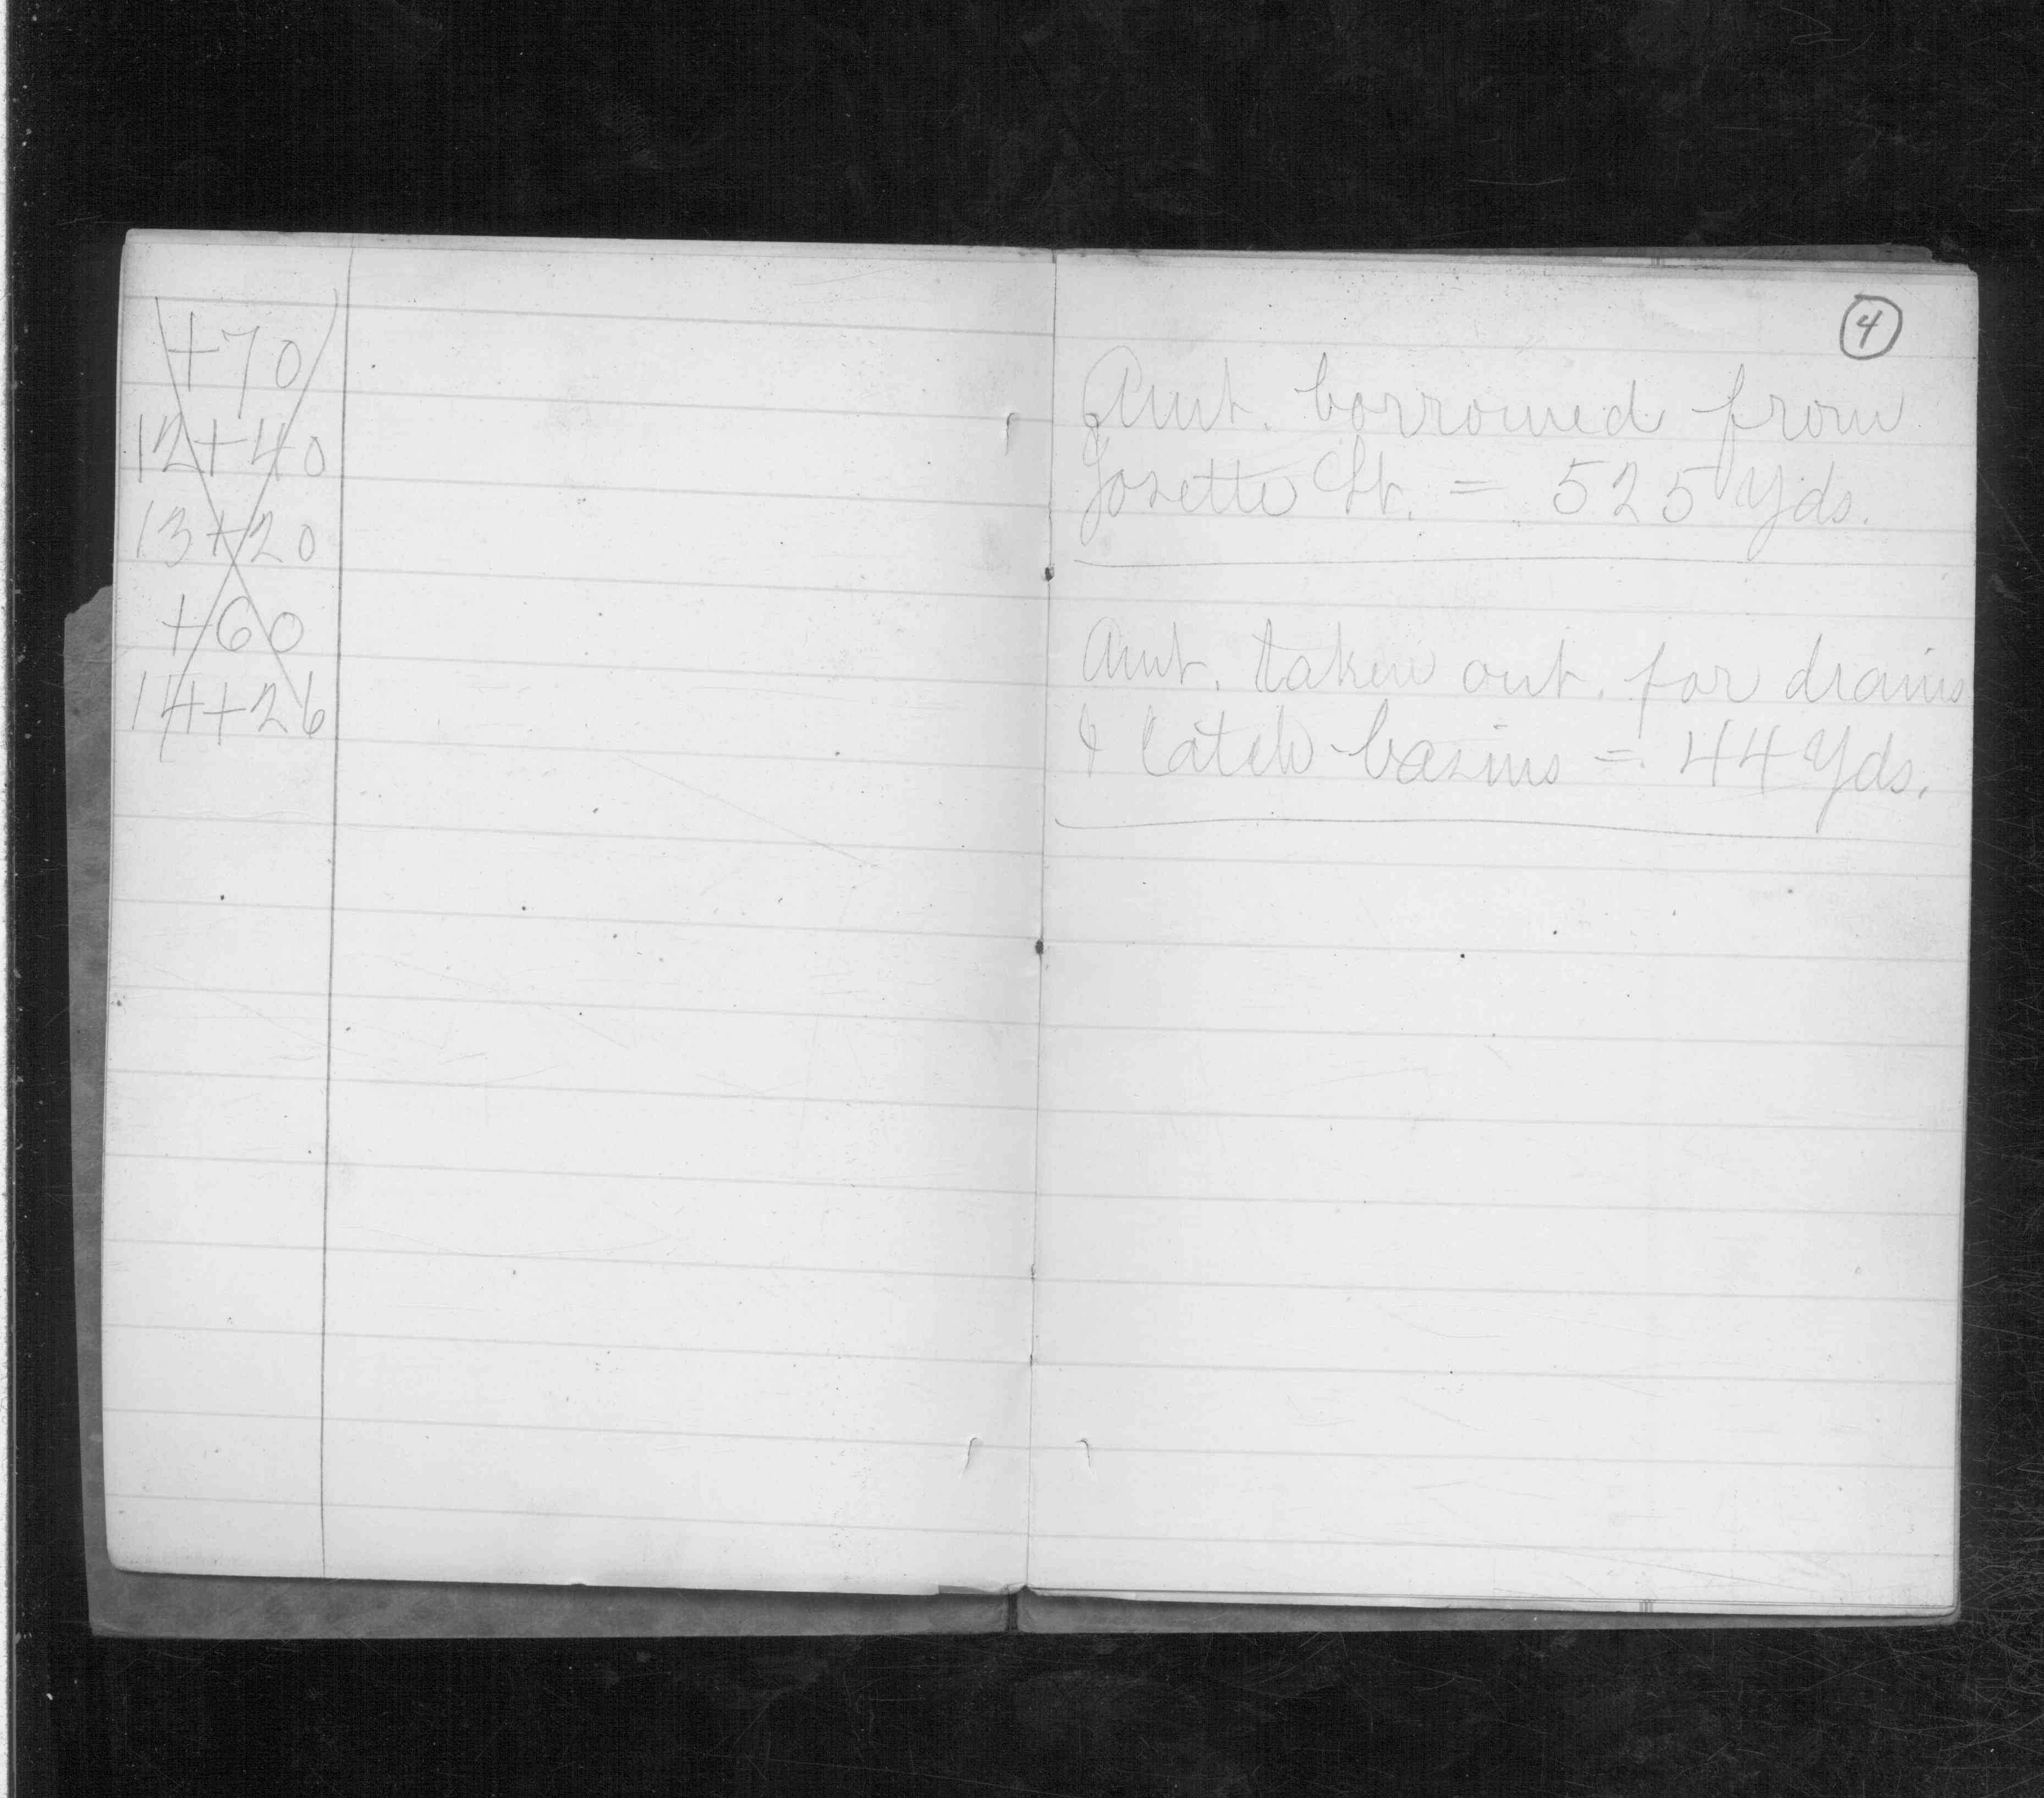 +70
12+40
13+20
+60
14+26
4
Amt. borrowed from
Josette St. = 525 Yds.
Amt. taken out for drains
& Catch basins = 44 Yds.